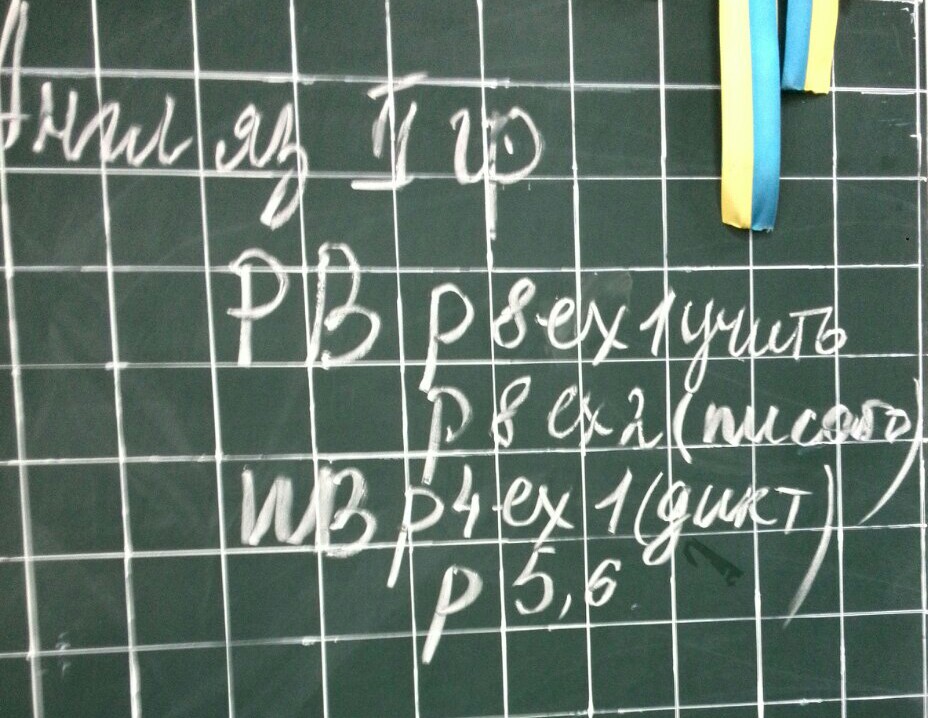 Англ яз II гр
PB p 8 ex 1 учить
p 8 ex 2 (писать)
WB p 4 ex 1 (дикт)
p 5,6